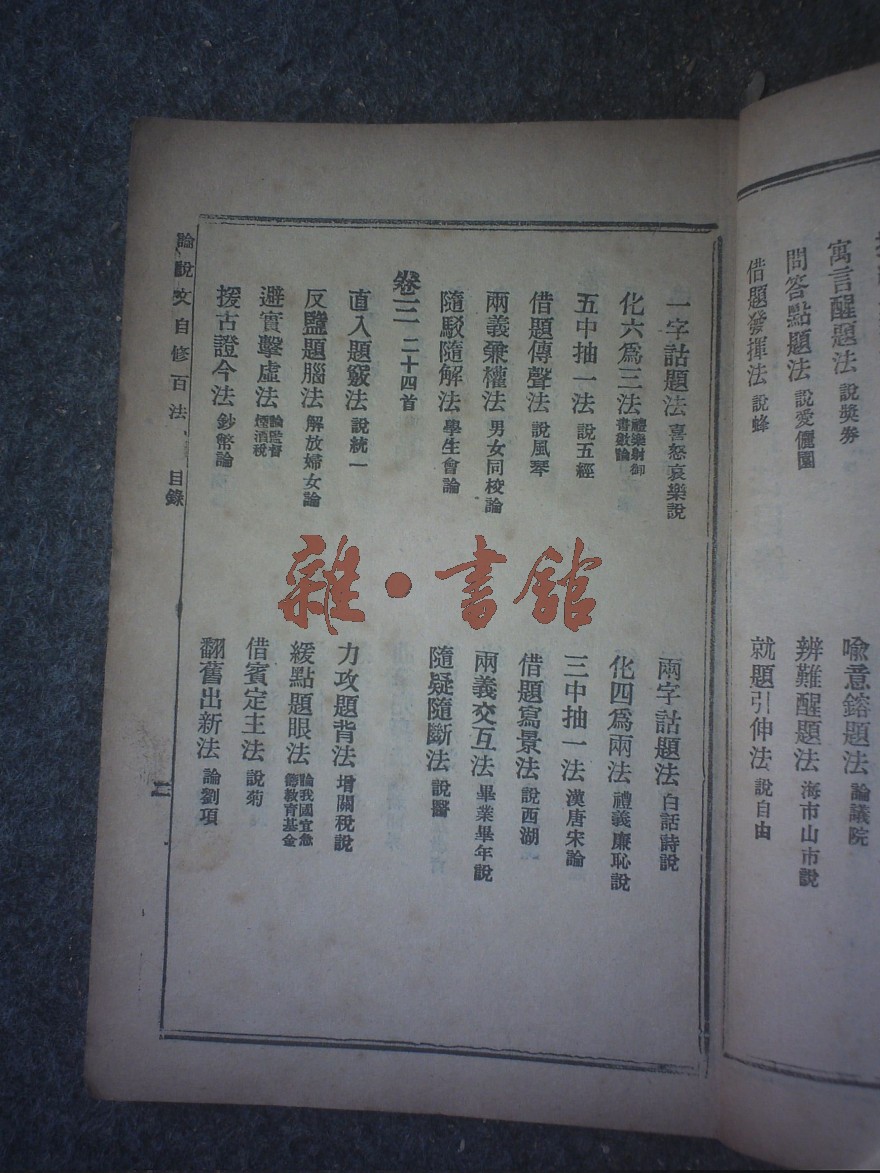 寓言醒題法 說獎券
喻意鎔題法 論議院
問答點題法 說愛儷園
辨難醒題法 海市山市說
借題發揮法 說蜂
就題引伸法 說自由
一字詁題法 喜怒哀樂說
兩字詁題法 白話詩說
化六爲三法 禮樂射御書數論
化四爲兩法 禮義廉恥說
五中抽一法 說五經
三中抽一法 漢唐宋論
借題傳聲法 說風琴
借題寫景法 說西湖
兩義兼權法 男女同校論
兩義交互法 畢業畢年說
隨駁隨解法 學生會論
隨疑隨斷法 說醫
卷三 二十四首
直入題竅法 說統一
力攻題背法 增關稅說
反盬題腦法 解放婦女論
緩點題眼法 論我國宜急籌教育基金
避實擊虛法 論監督煙酒稅
借賓定主法 說菊
援古證今法 鈔幣論
翻舊出新法 論劉項
論說文自修百法 目錄
二
雜·書館